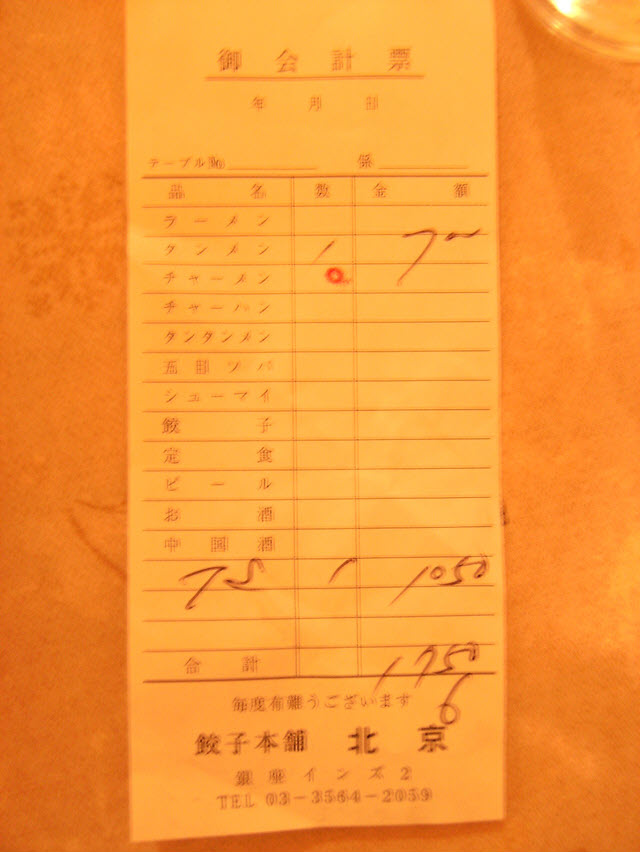 御会計票
年 月 日
テーブルNo. 係
品名 数 金額
ラーメン
タンメン 1 700
チャーメン
チャーハン
タンタンメン
五目ソバ
シューマイ
餃子
定食
ビール
お酒
中国酒
1 1050
合計 1750
毎度有難うございます
餃子本舗 北京
銀座インズ2
TEL 03-3564-2059